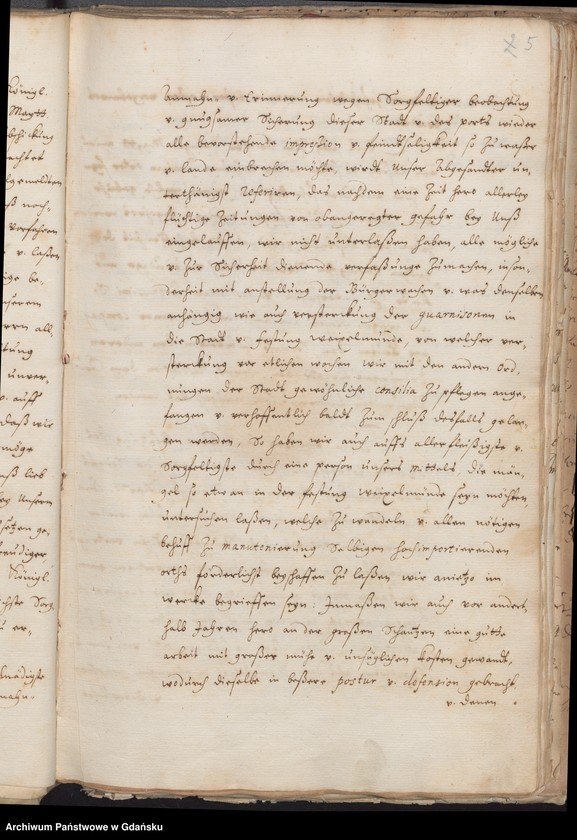 25
Anmahn- v. Erinnerung wegen Sorgfeltiger beobachtung
v. gnugsamer Sicherung dieser Stadt v. des ports wieder
alle bevorstehende impression v. feindtseligkeit so zu waßer
v. lande einbrechen möchte, wirdt Unser Abgesandter un-
terthänigst referiren, das nachdem eine Zeit hero allerley
flüchtige Zeitungen von obangeregter gefahr bey Unß
eingelauffen, wir nicht unterlaßen haben, alle mögliche
v. zur Sicherheit dienende verfaßunge zumachen, inson-
derheit mit anstellung der Bürgerwachen v. was denselben
anhängig wie auch versterckung der guarnisonen in
die Stadt v. festung weixelmünde, von welcher ver-
sterckung vor etlichen wochen wir mit den andern Ord-
nungen der Stadt gewöhnliche consilia zu pflegen ange-
fangen v. verhoffentlich baldt zum schluß desfalls gelan-
gen werden, So haben wir auch auffs allerfleißigste v.
Sorgfeltigste durch eine person unsers mittels, die män-
gel so etwan in der festung weixelmünde seyn möchten,
untersuchen laßen, welche zu wandeln v. allen nötigen
behuff zu manutenierung selbigen hochimportierenden
orths förderlichst beyschaffen zu laßen wir anietzo im
wercke begrieffen seyn: Inmaßen wir auch vor andert-
halb Jahren hero an der großen Schantzen eine gutte
arbeit mit großer mühe v. unsäglichen kosten gewandt,
wodurch dieselbe in beßere postur v. defension gebracht,
v. denen
Königl.
Maytt.
v. laßen
unserm
daß wie
möge
Königl.
Archiwum Państwowe w Gdańsku